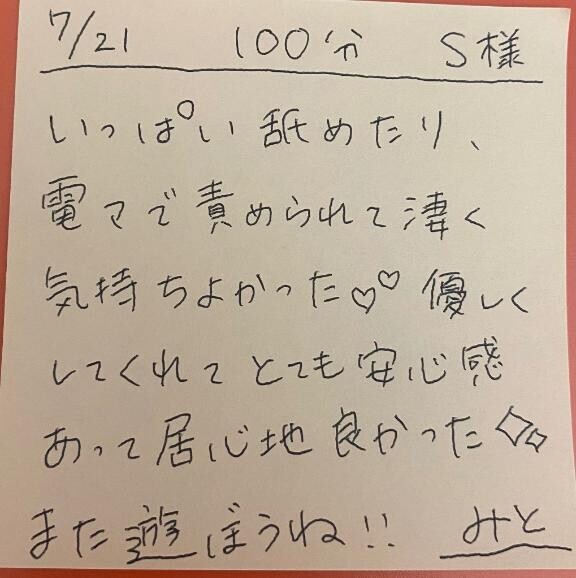 7/21 100分 S様
いっぱい舐めたり、
電マで責められて凄く
気持ちよかった♡♡ 優しく
してくれてとても安心感
あって居心地良かった◇◇
また遊ぼうね!! みと